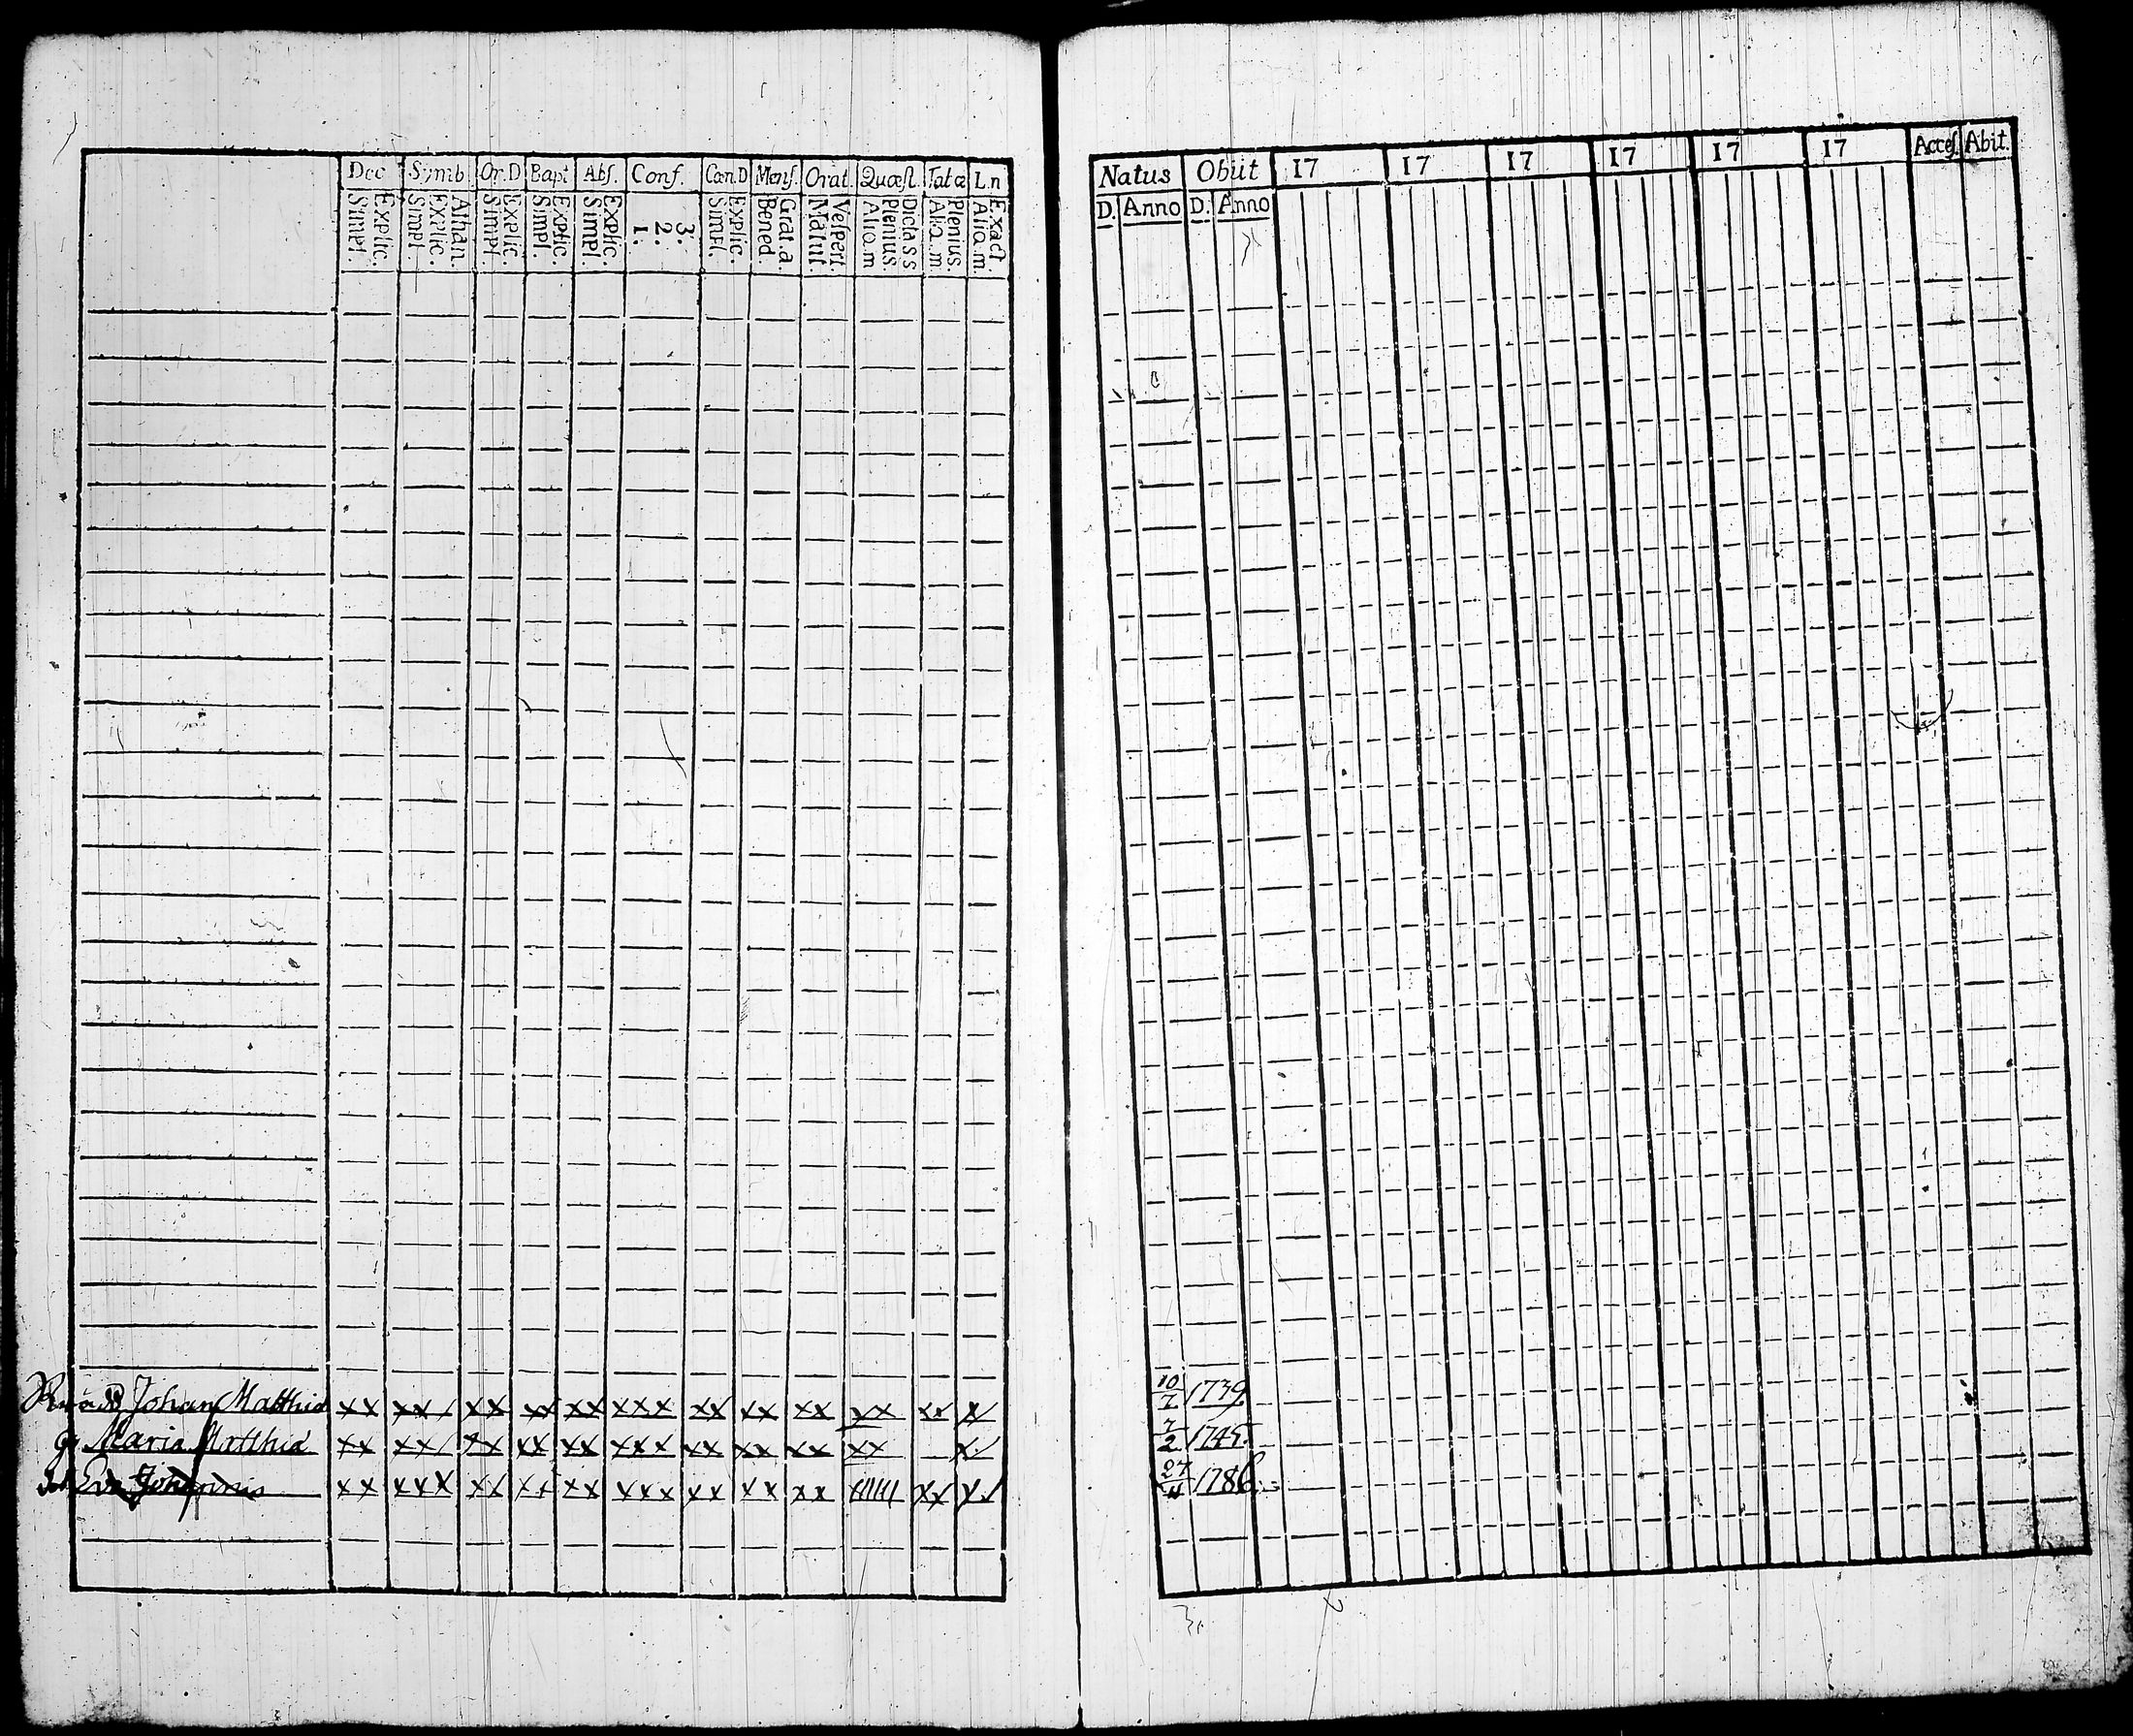 Dec Symb. Or.D Bapt Abs. Conf. Cœn.D Mens. Orat. Quæst. Tab.œ L.n
Simpl. Explic. Simpl. Explic. Athan. Simpl. Explic. Simpl. Explic. Simpl. Explic. 1. 2. 3. Simpl. Explic. Bened. Grat.a. Matut. Vespert. Aliq.m Plenius. Dicta SS Aliq.m. Plenius. Aliq.m. Exact.
Johan Matthiæ xx xx/ xx xx xx xxx xx xx xx xx xx x/
Maria Matthiæ xx xx/ xx xx xx xxx xx xx xx xx x/
Eva Johannis xx xxx xx xx xx xxx xx xx xx ////// xx x/
Natus Obiit 17 17 17 17 17 17 Acces. Abit.
D. Anno D. Anno
10/7 1739
7/2 1745.
27/11 1786